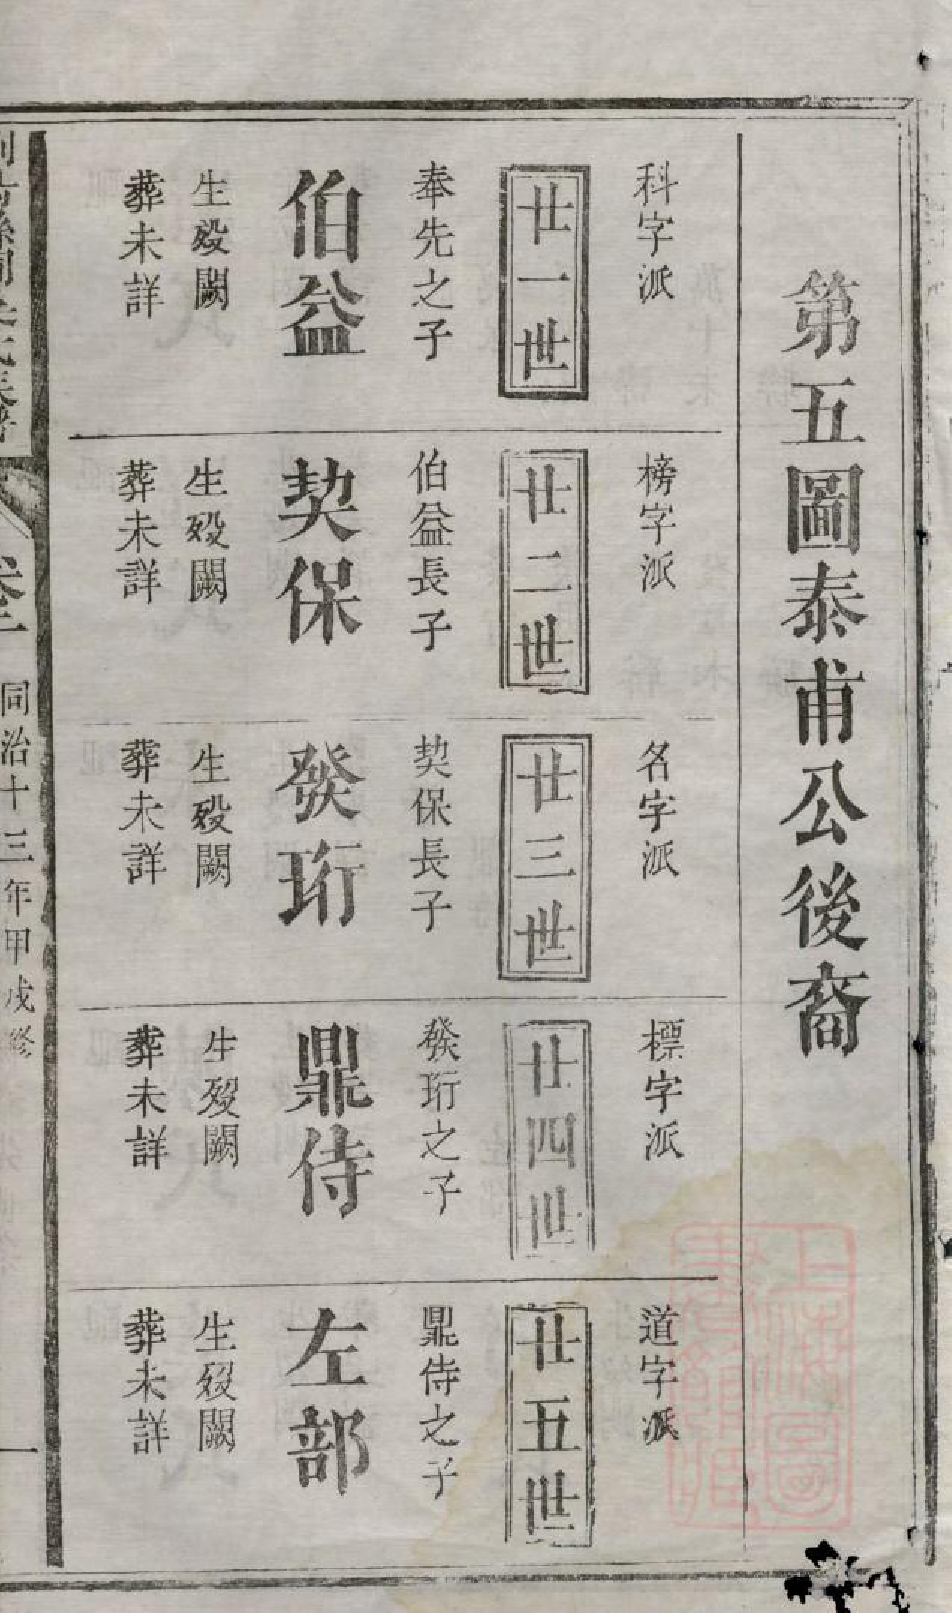 第五圖泰甫公後裔
科字派
廿一世
奉先之子
伯益
生歿闕
葬未詳
榜字派
廿二世
伯益長子
契保
生歿闕
葬未詳
名字派
廿三世
契保長子
發珩
生歿闕
葬未詳
標字派
廿四世
發珩之子
鼎侍
生歿闕
葬未詳
道字派
廿五世
鼎侍之子
左部
生歿闕
葬未詳
同治十三年甲戌修
一
上海圖書館藏